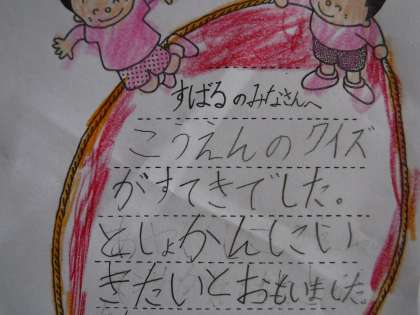 すばるのみなさんへ
こうえんのクイズ
がすてきでした。
としょかんにい
きたいとおもいました。